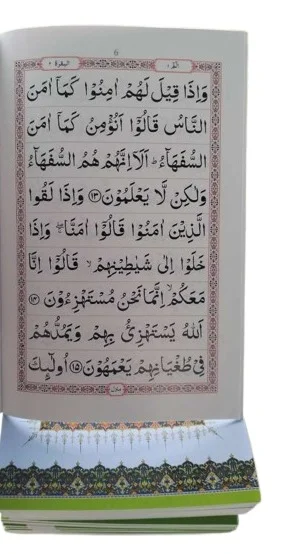 ٦
البقرة ٢
الٓمّٓ ١
وَاِذَا قِيْلَ لَهُمْ اٰمِنُوْا كَمَآ اٰمَنَ
النَّاسُ قَالُوْٓا اَنُؤْمِنُ كَمَآ اٰمَنَ
السُّفَهَآءُ ؕ اَلَآ اِنَّهُمْ هُمُ السُّفَهَآءُ
وَلٰكِنْ لَّا يَعْلَمُوْنَ ﴿۱۳﴾ وَاِذَا لَقُوا
الَّذِيْنَ اٰمَنُوْا قَالُوْٓا اٰمَنَّا ۖۚ وَاِذَا
خَلَوْا اِلٰى شَيٰطِيْنِهِمْ ۙ قَالُوْٓا اِنَّا
مَعَكُمْ ۙ اِنَّمَا نَحْنُ مُسْتَهْزِءُوْنَ ﴿۱۴﴾
اَللّٰهُ يَسْتَهْزِئُ بِهِمْ وَيَمُدُّهُمْ
فِيْ طُغْيَانِهِمْ يَعْمَهُوْنَ ﴿۱۵﴾ اُولٰٓئِكَ